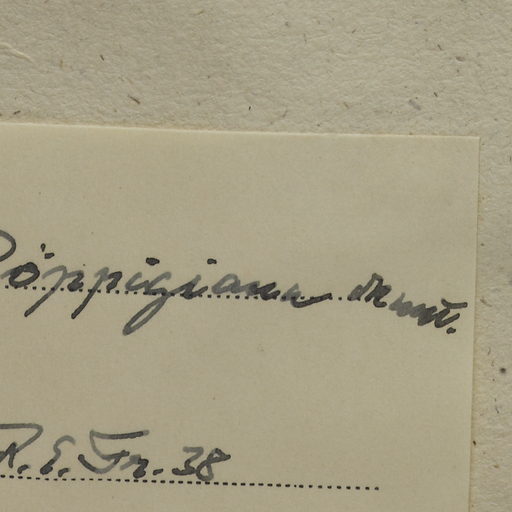 Pöppigiana Kunth.
R. E. Fr. 38